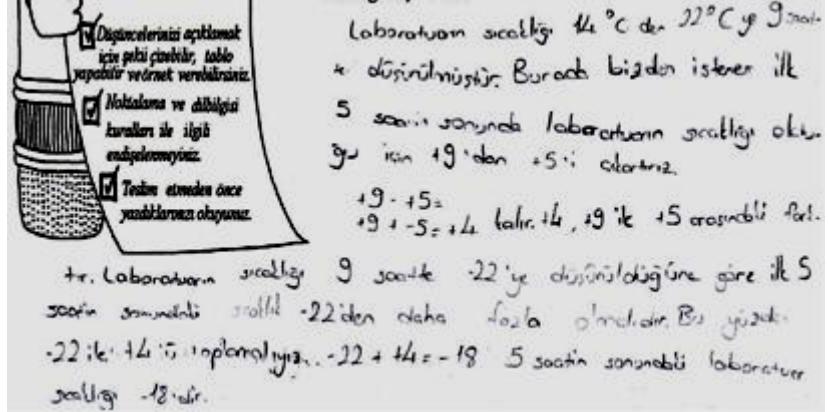 Düşüncelerinizi açıklamak
için şekil çizebilir, tablo
yapabilir ve örnek verebilirsiniz.
Noktalama ve dilbilgisi
kuralları ile ilgili
endişelenmeyiniz.
Teslim etmeden önce
yazdıklarınızı okuyunuz.
Laboratuarın sıcaklığı 14 °C den 22°C ye 9 saat-
te düşürülmüştür. Burada bizden istenen ilk
5 saatin sonunda laboratuarın sıcaklığı oldu-
ğu için +9'dan +5'i çıkartırız.
+9 - +5=
+9 + -5= +4 kalır. +4, +9 ile +5 arasındaki fark-
tır. Laboratuarın sıcaklığı 9 saatte -22'ye düşürüldüğüne göre ilk 5
saatin sonundaki sıcaklık -22'den daha fazla olmalıdır. Bu yüzden
-22 ile +4'ü toplamalıyız. -22 + +4 = -18 5 saatin sonundaki laboratuar
sıcaklığı -18'dir.